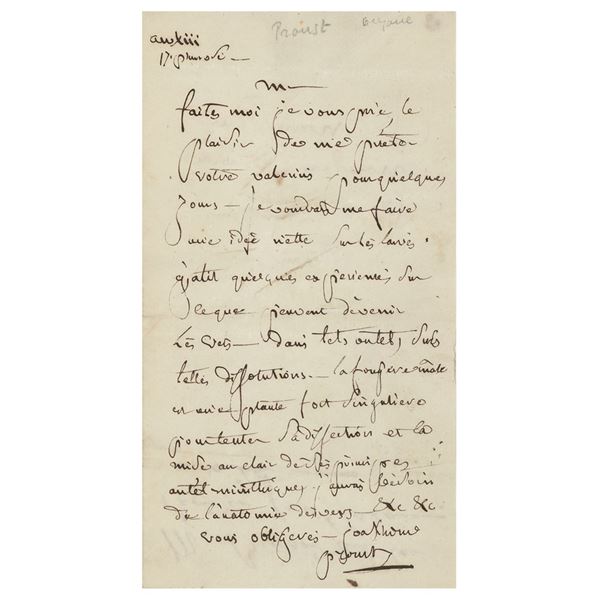 Proust
an xiii
17
M
faites moi je vous prie, le
plaisir de me prêter
votre valerius pour quelques
jours — je voudrais me faire
une idée nette sur les larves.
quelques experiences sur
ce que peuvent devenir
les vers — dans tels ou tels, sucs
telles dissolutions. — la fougere male
est une plante fort singuliere
pour tenter sa dissection et la
mise au clair de ses principes
antelminthiques, j'aurais besoin
de l'anatomie des vers — &c &c
vous obligeres —
proust